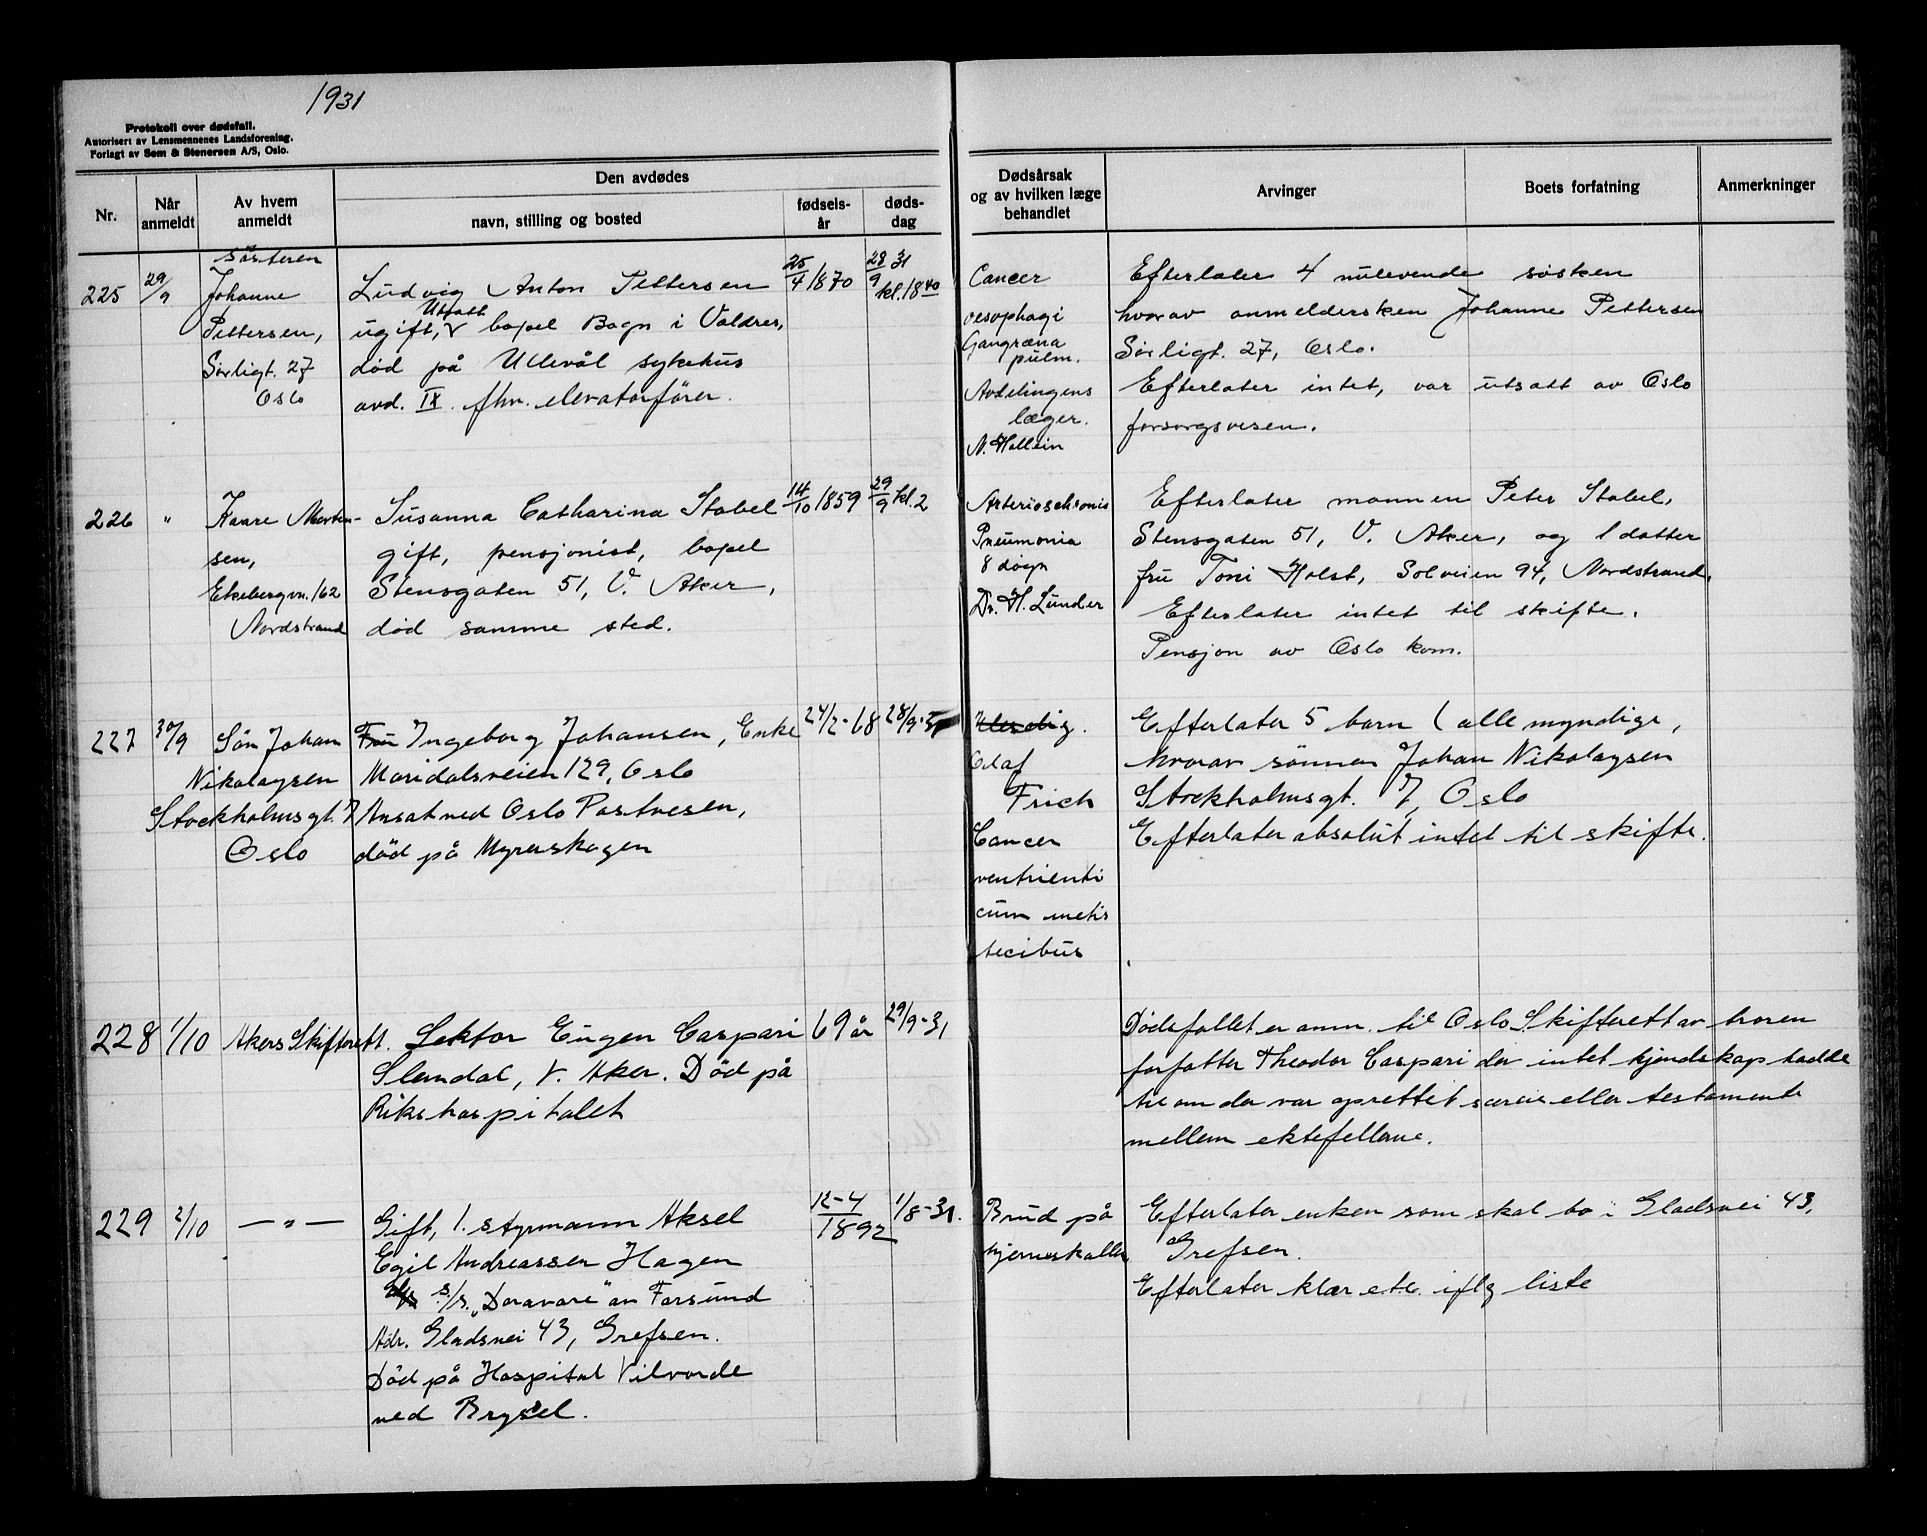 1931
Protokoll over dødsfall.
Autorisert av Lensmennenes Landsforening.
Forlagt av Sem & Stenersen A/S, Oslo.
Nr.
Når anmeldt
Av hvem anmeldt
Den avdødes
navn, stilling og bosted
fødsels-år
døds-dag
Dødsårsak og av hvilken læge behandlet
Arvinger
Boets forfatning
Anmerkninger
225 29/9
Søsteren
Johanne
Pettersen,
Sörligt. 27
Oslo
Ludvig Anton Pettersen
Utsatt
ugift, v bopel Bagn i Valdres,
död på Ullevål sykehus
avd. IX. fhv. elevatorfører.
25/4 1870
28/9 31
kl. 18 40
Cancer
oesophagi
Gangræna
pulm.
Avdelingens
læger.
N. Hallein
Efterlater 4 nulevende søsken
hvorav anmeldersken Johanne Pettersen
Sörligt. 27, Oslo.
Efterlater intet, var utsatt av Oslo
forsorgsvesen.
226 "
Kaare Morten-
sen,
Ekebergvn. 162
Nordstrand
Susanna Catharina Stabel
gift, pensjonist, bopel
Stensgaten 51, V. Aker,
död samme sted.
14/10 1859
29/9 kl. 2
Pneumonia
8 dögn
Dr. H. Lunder
Efterlater mannen Peter Stabel,
Stensgaten 51, V. Aker, og 1 datter
fru Toni Holst, Solveien 94, Nordstrand.
Efterlater intet til skifte.
Pensjon av Oslo kom.
227 30/9
Sön Johan
Nikolaysen
Stockholmsgt. 7
Oslo
Fru Ingeborg Johansen, Enke
Maridalsveien 129, Oslo
Ansat ved Oslo Postvesen,
död på Myrerskogen
24/2-68
28/9-31
Olaf
Frich
Cancer
ventrienti
cum metis
tecibus
Efterlater 5 barn (alle myndige,
hvorav sönnen Johan Nikolaysen
Stockholmsgt. 7, Oslo
Efterlater absolut intet til skifte.
228 1/10
Akers Skifterett.
Lektor Eugen Caspari
Slemdal, V. Aker. Död på
Rikshospitalet
69 år
29/9-31
Dödsfallet er anm. til Oslo Skifterett av broren
forfatter Theodor Caspari der intet kjendskap hadde
til om der var oprettet særeie eller testamente
mellem ektefellerne.
229 2/10
— " —
Gift, 1. styrmann Aksel
Egil Andreassen Hagen
s/s. "Daravare" av Farsund
Adr. Gladsvei 43, Grefsen.
Död på Hospital Vilvorde
ved Bryssel.
12-4
1892
1/8-31.
Brud på
hjerneskallen
Efterlater enken som skal bo i Gladsvei 43,
Grefsen.
Efterlater klær etc. iflg liste